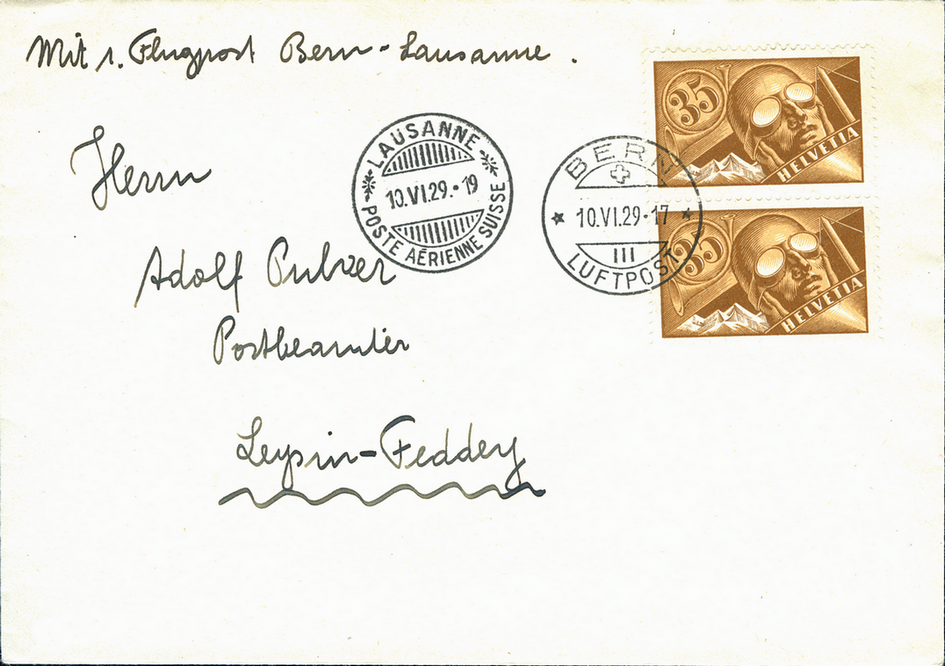 Mit 1. Flugpost Bern - Lausanne.
LAUSANNE
10.VI.29.-19
POSTE AÉRIENNE SUISSE
BERN
10.VI.29-17
III
LUFTPOST
35
HELVETIA
35
HELVETIA
Herrn
Adolf Pulver
Postbeamter
Leysin-Feddey